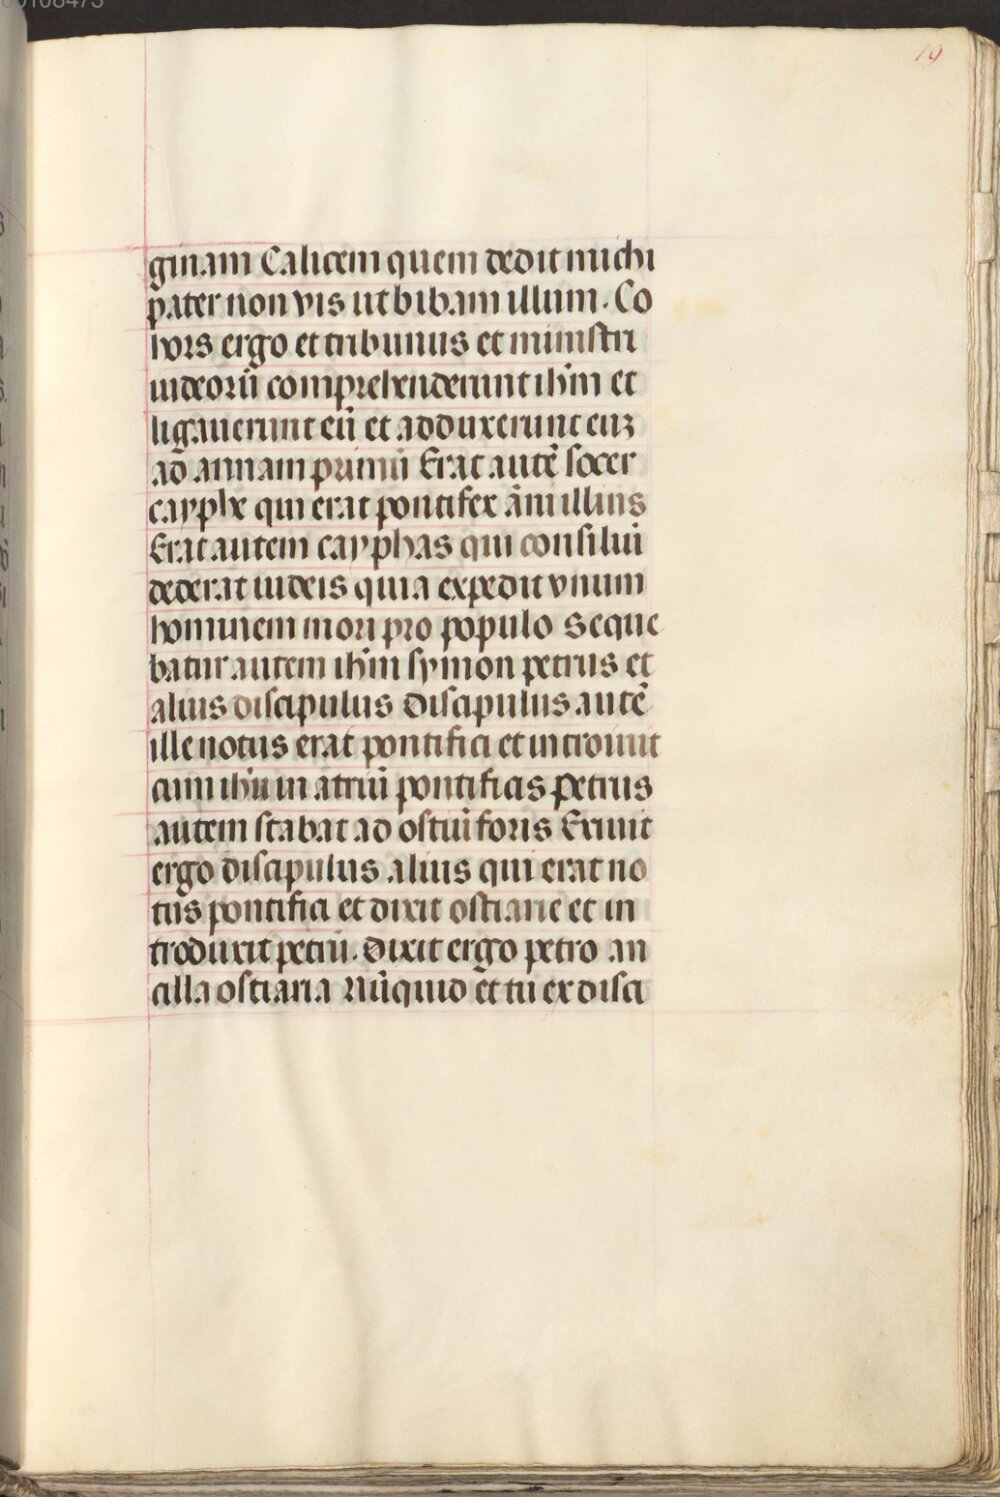 19
ginam Calicem quem dedit michi
pater non vis ut bibam illum. Co
hors ergo et tribunus et ministri
iudeorū comprehenderunt ihm̄ et
ligauerunt eū et adduxerunt euʒ
ad annam primū Erat autē socer
cayphe qui erat pontifex āni illius
Erat autem cayphas qui consiliū
dederat iudeis quia expedit vnum
hominem mori pro populo Seque
batur autem ihm̄ symon petrus et
alius discipulus Discipulus autē
ille notus erat pontifici et introiuit
cum ihū in atriū pontificis Petrus
autem stabat ad ostiū foris Exiuit
ergo discipulus alius qui erat no
tus pontifici et dixit ostiarie et in
troduxit petrū. Dixit ergo petro an
cilla ostiaria Nūquid et tu ex disci